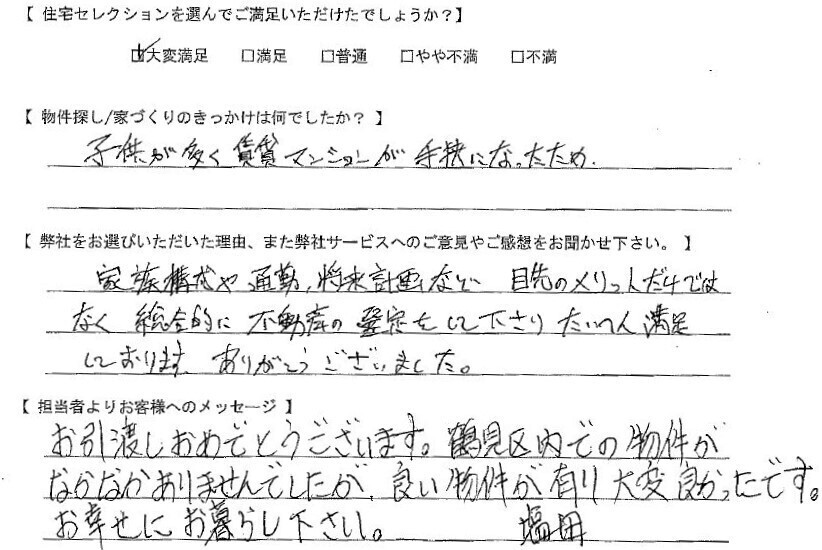 【 住宅セレクションを選んでご満足いただけたでしょうか？】
☑大変満足 □満足 □普通 □やや不満 □不満
【 物件探し/家づくりのきっかけは何でしたか？ 】
子供が多く賃貸マンションが手狭になったため。
【 弊社をお選びいただいた理由、また弊社サービスへのご意見やご感想をお聞かせ下さい。 】
家族構成や通勤、将来計画など 目先のメリットだけでは
なく 総合的に不動産の選定をして下さり たいへん満足
しております。ありがとうございました。
【 担当者よりお客様へのメッセージ 】
お引渡しおめでとうございます。鶴見区内での物件が
なかなかありませんでしたが、良い物件が有り大変良かったです。
お幸せにお暮らし下さい。 塩田